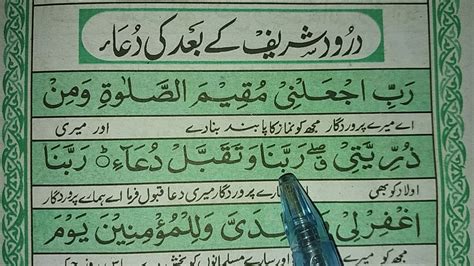 درود شریف کے بعد کی دعاء
رَبِّ اجْعَلْنِیْ مُقِیْمَ الصَّلٰوةِ وَمِنْ
اے میرے پروردگار مجھ کو نماز کا پابند بنا دے اور میری
ذُرِّیَّتِیْ ۖ رَبَّنَا وَتَقَبَّلْ دُعَآءِ ۝ رَبَّنَا
اولاد کو بھی پروردگار میری دعا قبول فرما اے ہمارے پروردگار
اغْفِرْ لِیْ وَلِلْمُؤْمِنِیْنَ یَوْمَ
مجھ کو اور سارے مسلمانوں کو